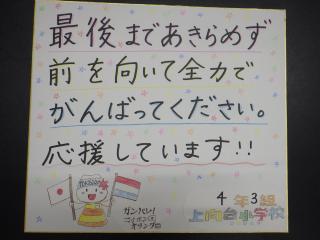 最後まであきらめず
前を向いて全力で
がんばってください。
応援しています!!
4年3組
上向台小学校
ガンバレ!
ニッポン